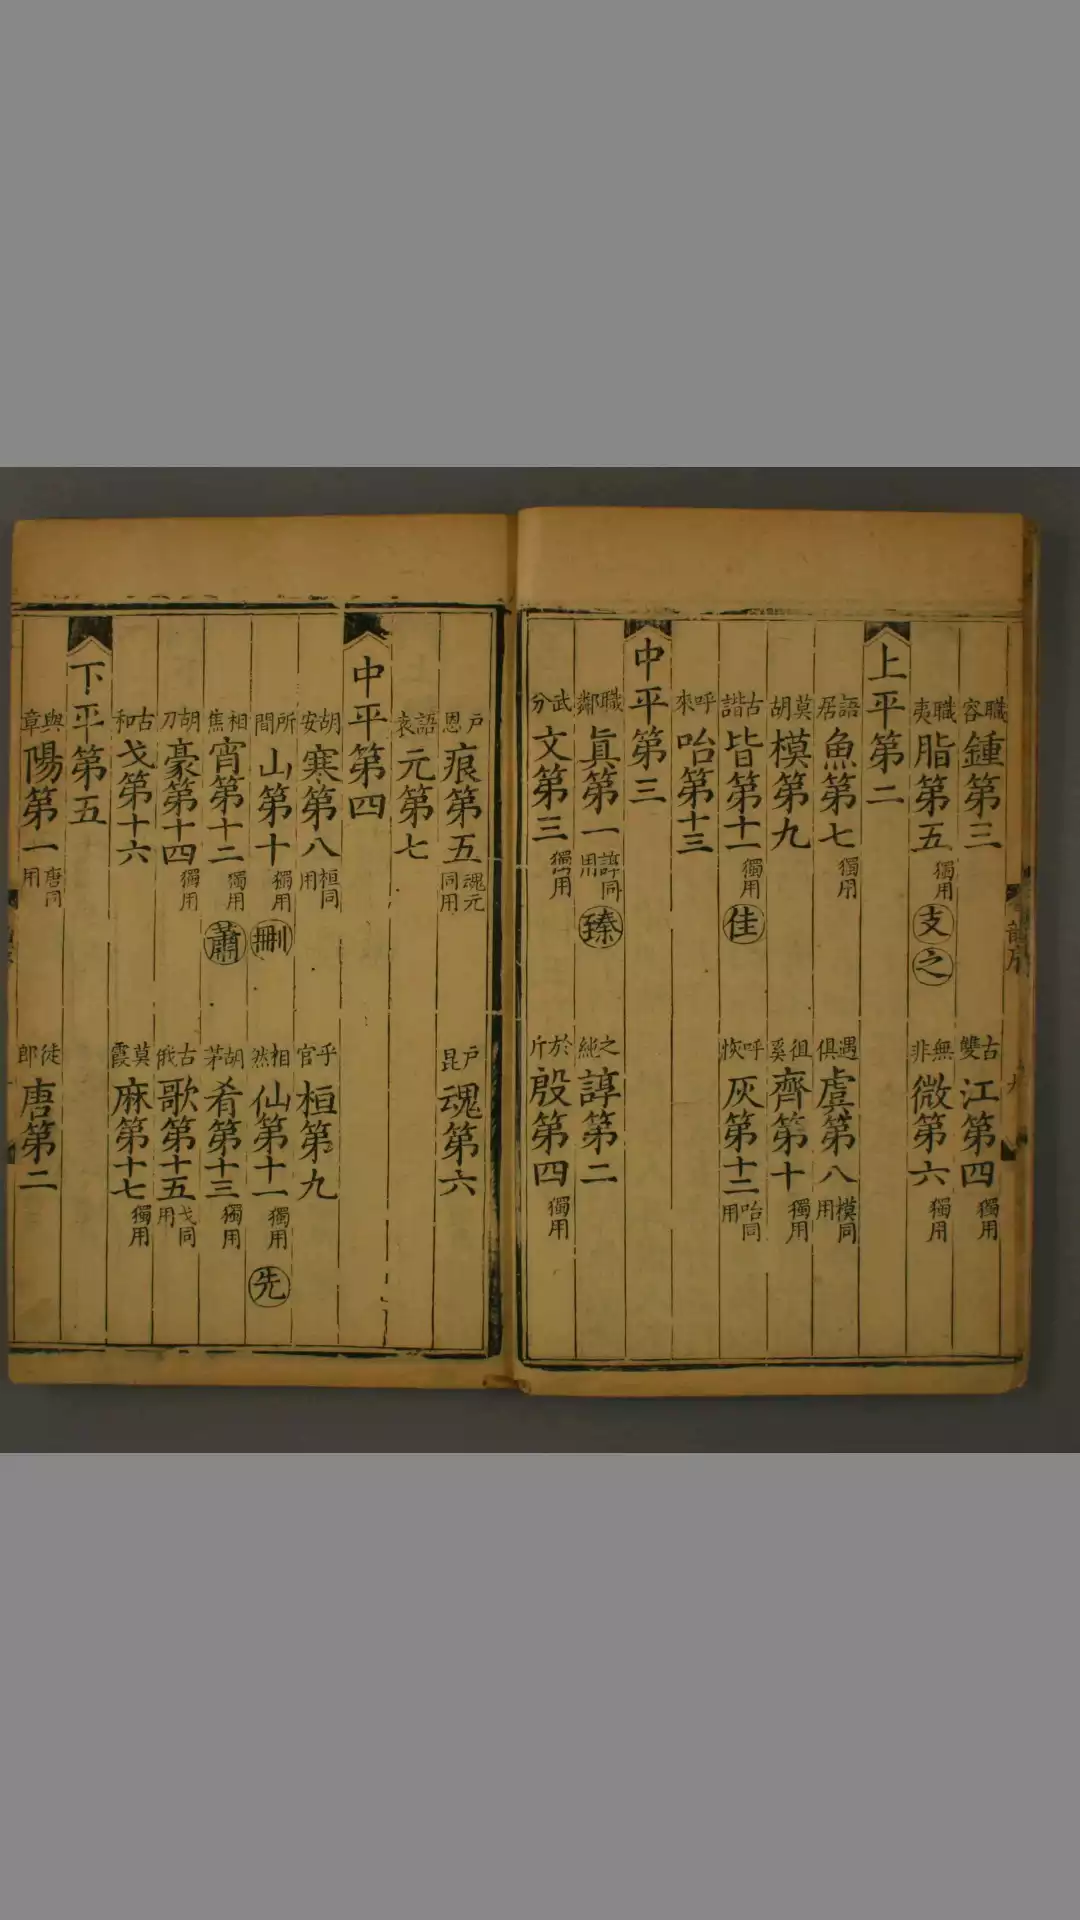 職容鍾第三 古雙江第四獨用
職夷脂第五獨用支之 無非微第六獨用
上平第二
語居魚第七獨用 遇俱虞第八模同用
莫胡模第九 徂奚齊第十獨用
古諧皆第十一獨用佳 呼恢灰第十二咍同用
呼來咍第十三
中平第三
職鄰眞第一諄同用臻 之純諄第二
武分文第三獨用 於斤殷第四獨用
戶恩痕第五魂元同用 戶昆魂第六
語袁元第七
中平第四
胡安寒第八桓同用 乎官桓第九
所間山第十獨用刪 相然仙第十一獨用先
相焦宵第十二獨用蕭 胡茅肴第十三獨用
胡刀豪第十四獨用 古俄歌第十五戈同用
古和戈第十六 莫霞麻第十七獨用
下平第五
與章陽第一唐同用 徒郎唐第二